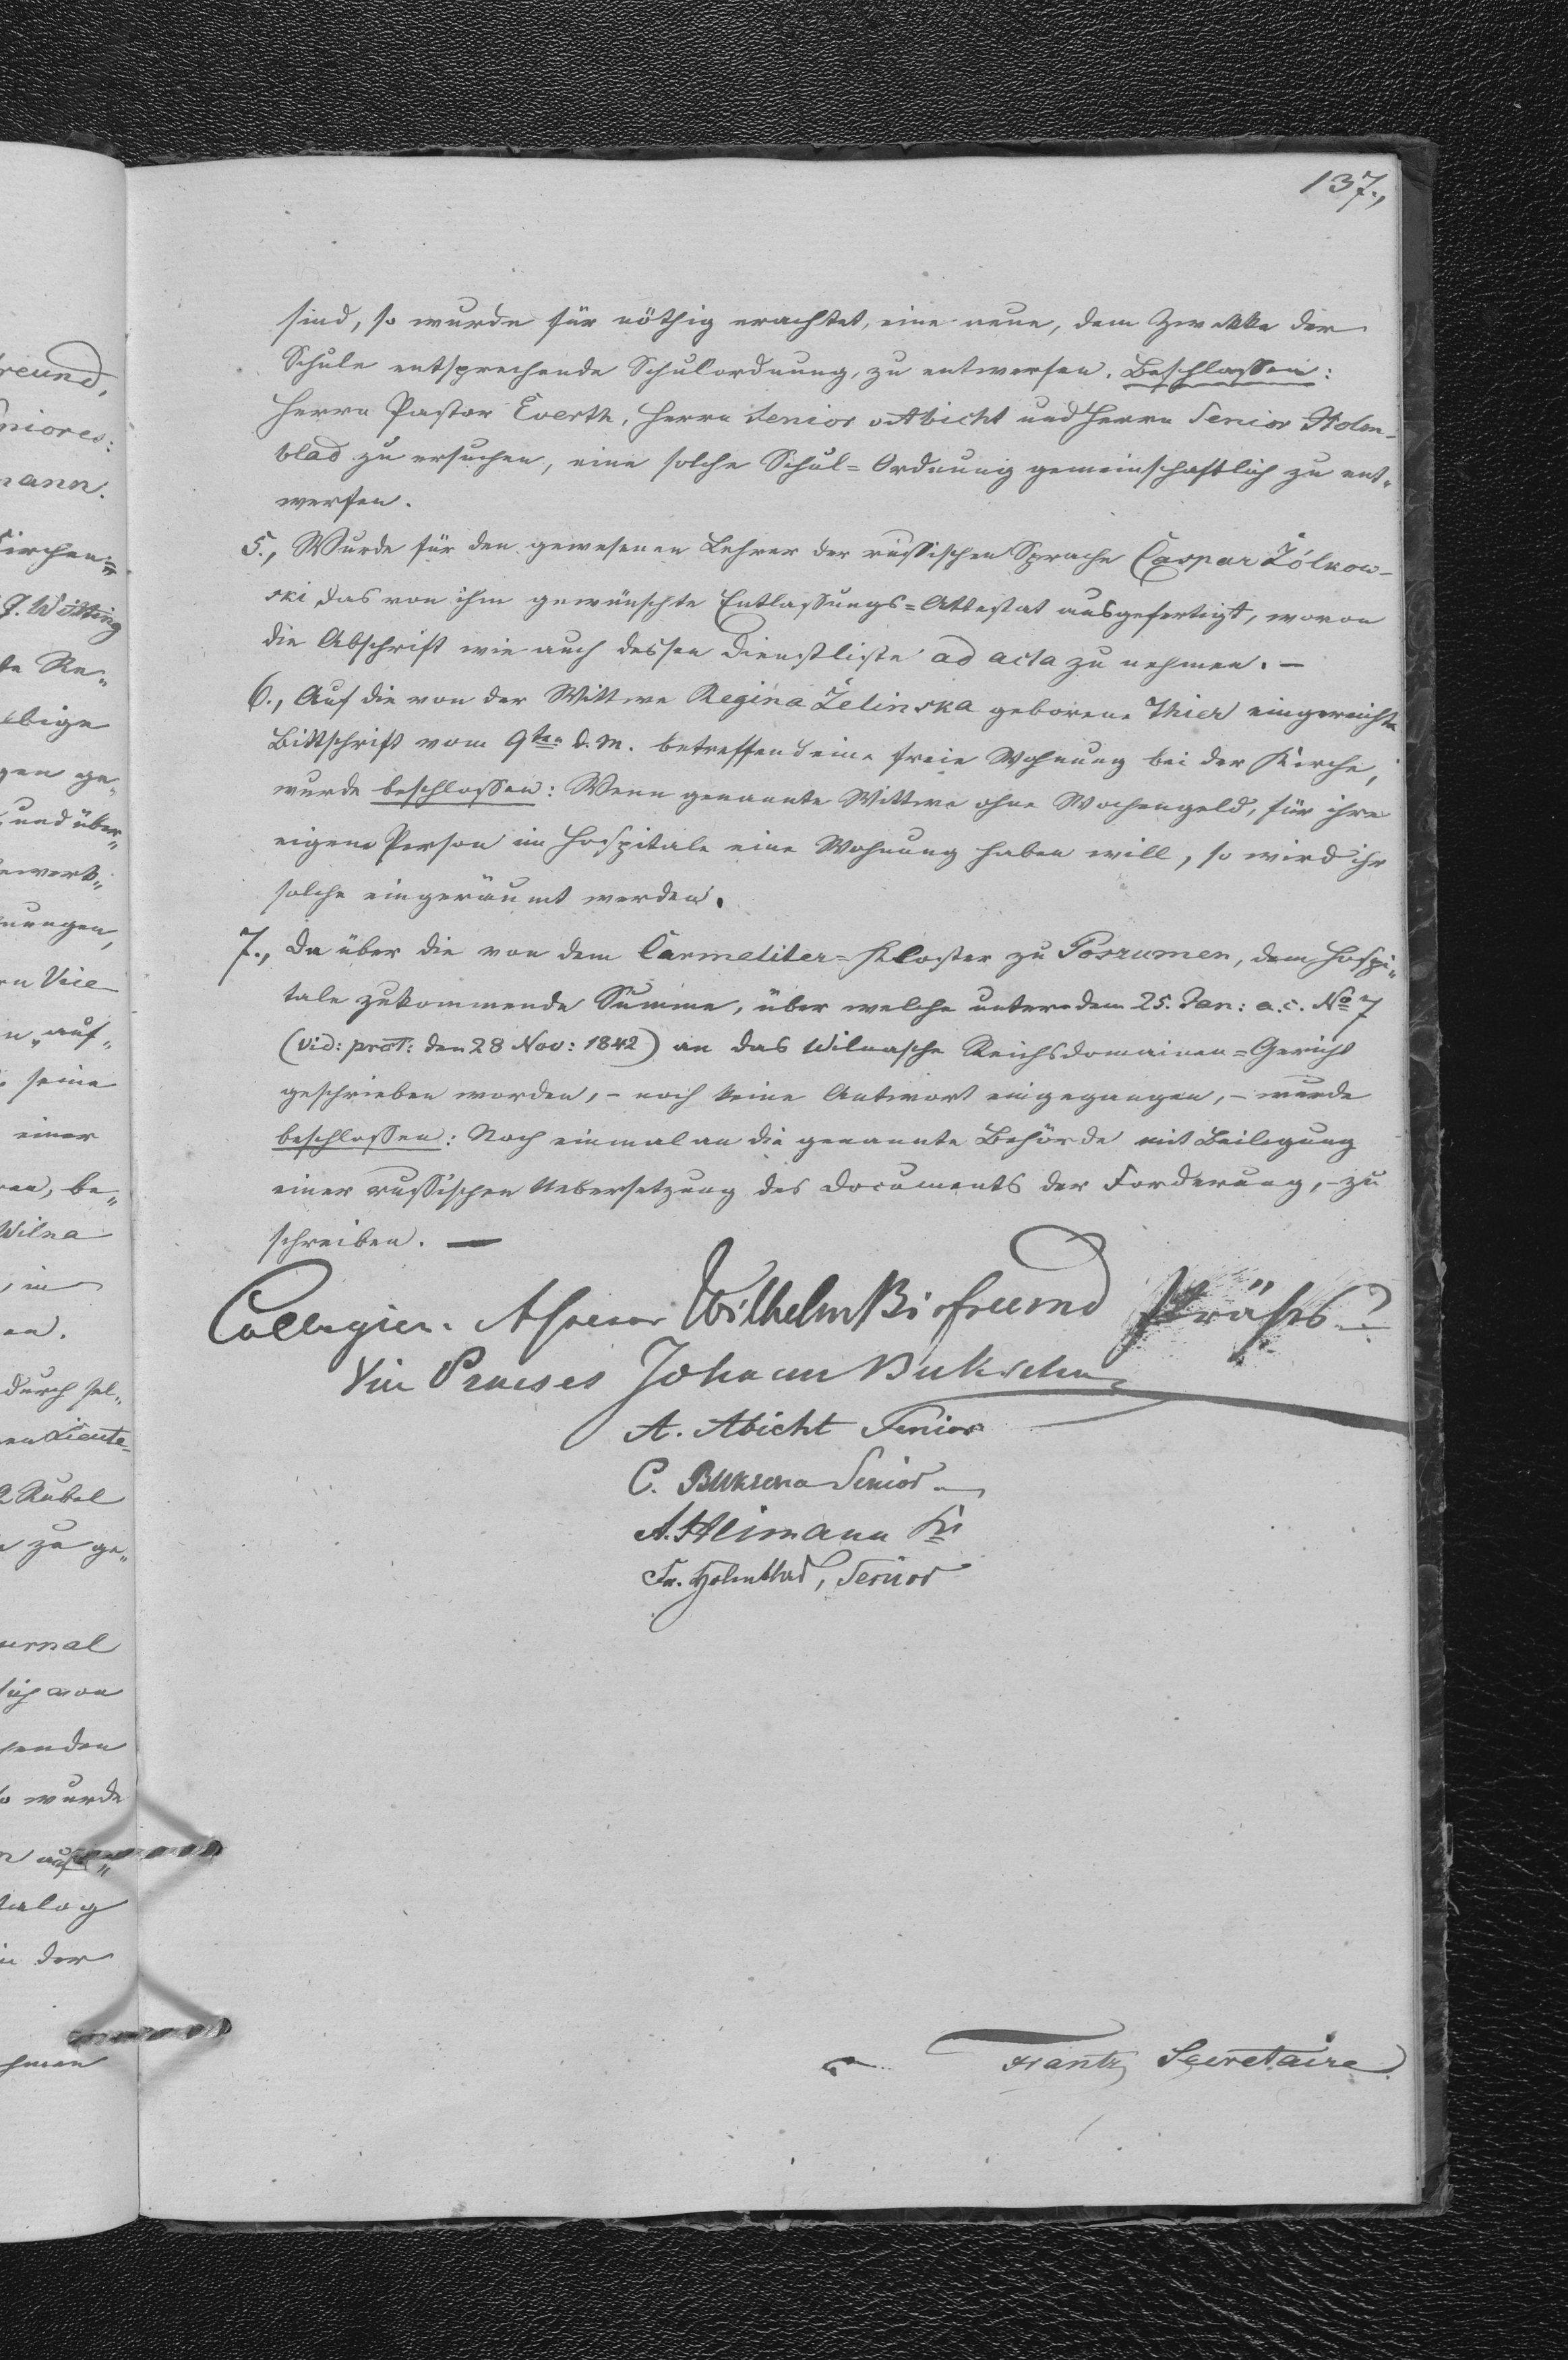 137.,
sind, so wurde für nöthig erachtet, eine neue, dem Zwekke der
Schule entsprechende Schulordnung, zu entwerfen. Beschlossen:
Herrn Pastor Everth, Herrn Senior Abicht und Herrn Senior Holm-
blad zu ersuchen, eine solche Schul=Ordnung gemeinschaftlich zu ent„
werfen.
5., Wurde für den gewesenen Lehrer der russischen Sprache Caspar Żółkow-
ski das von ihm gewünschte Entlassungs=Attestat ausgefertigt, wovon
die Abschrift wie auch dessen Dienstliste ad acta zu nehmen. —
6., Auf die von der Wittwe Regina Żelinska geborene Thier eingereichte
Bittschrift vom 9ten d. M. betreffend eine freie Wohnung bei der Kirche,
wurde beschlossen: Wenn genannte Wittwe ohne Wochengeld, für ihre
eigene Person im Hospitale eine Wohnung haben will, so wird ihr
solche eingeräumt werden.
7., Da über die von dem Carmeliter=Kloster zu Poszumen, dem Hospi„
tale zukommende Summe, über welche unter dem 25. Jan: a. c. No 7
(vid: prot: den 28 Nov: 1842) an das Wilnasche Reichsdomainen=Gericht
geschrieben worden, – noch keine Antwort eingegangen, – wurde
beschlossen: Noch einmal an die genannte Behörde mit Beilegung
einer russischen Uebersetzung des Documents der Forderung, – zu
schreiben. —
Collegien-Assessor Wilhelm Präses
Vice Praeses Johann
A. Abicht Senior
C. Senior
A. Heimann
Fr. Holmblad, Senior
Frantz Secretaire
reund,
niores:
mann.
irchen=
J. Witting
te Re„
lbige
gen ge„
und über„
werk„
nungen,
rn Vice
n auf„
seine
einer
en, be„
Wilna
, in
en.
durch sol„
en Lieute-
2 Rubel
zu ge„
urnal
enden
so wurde
talog
in der